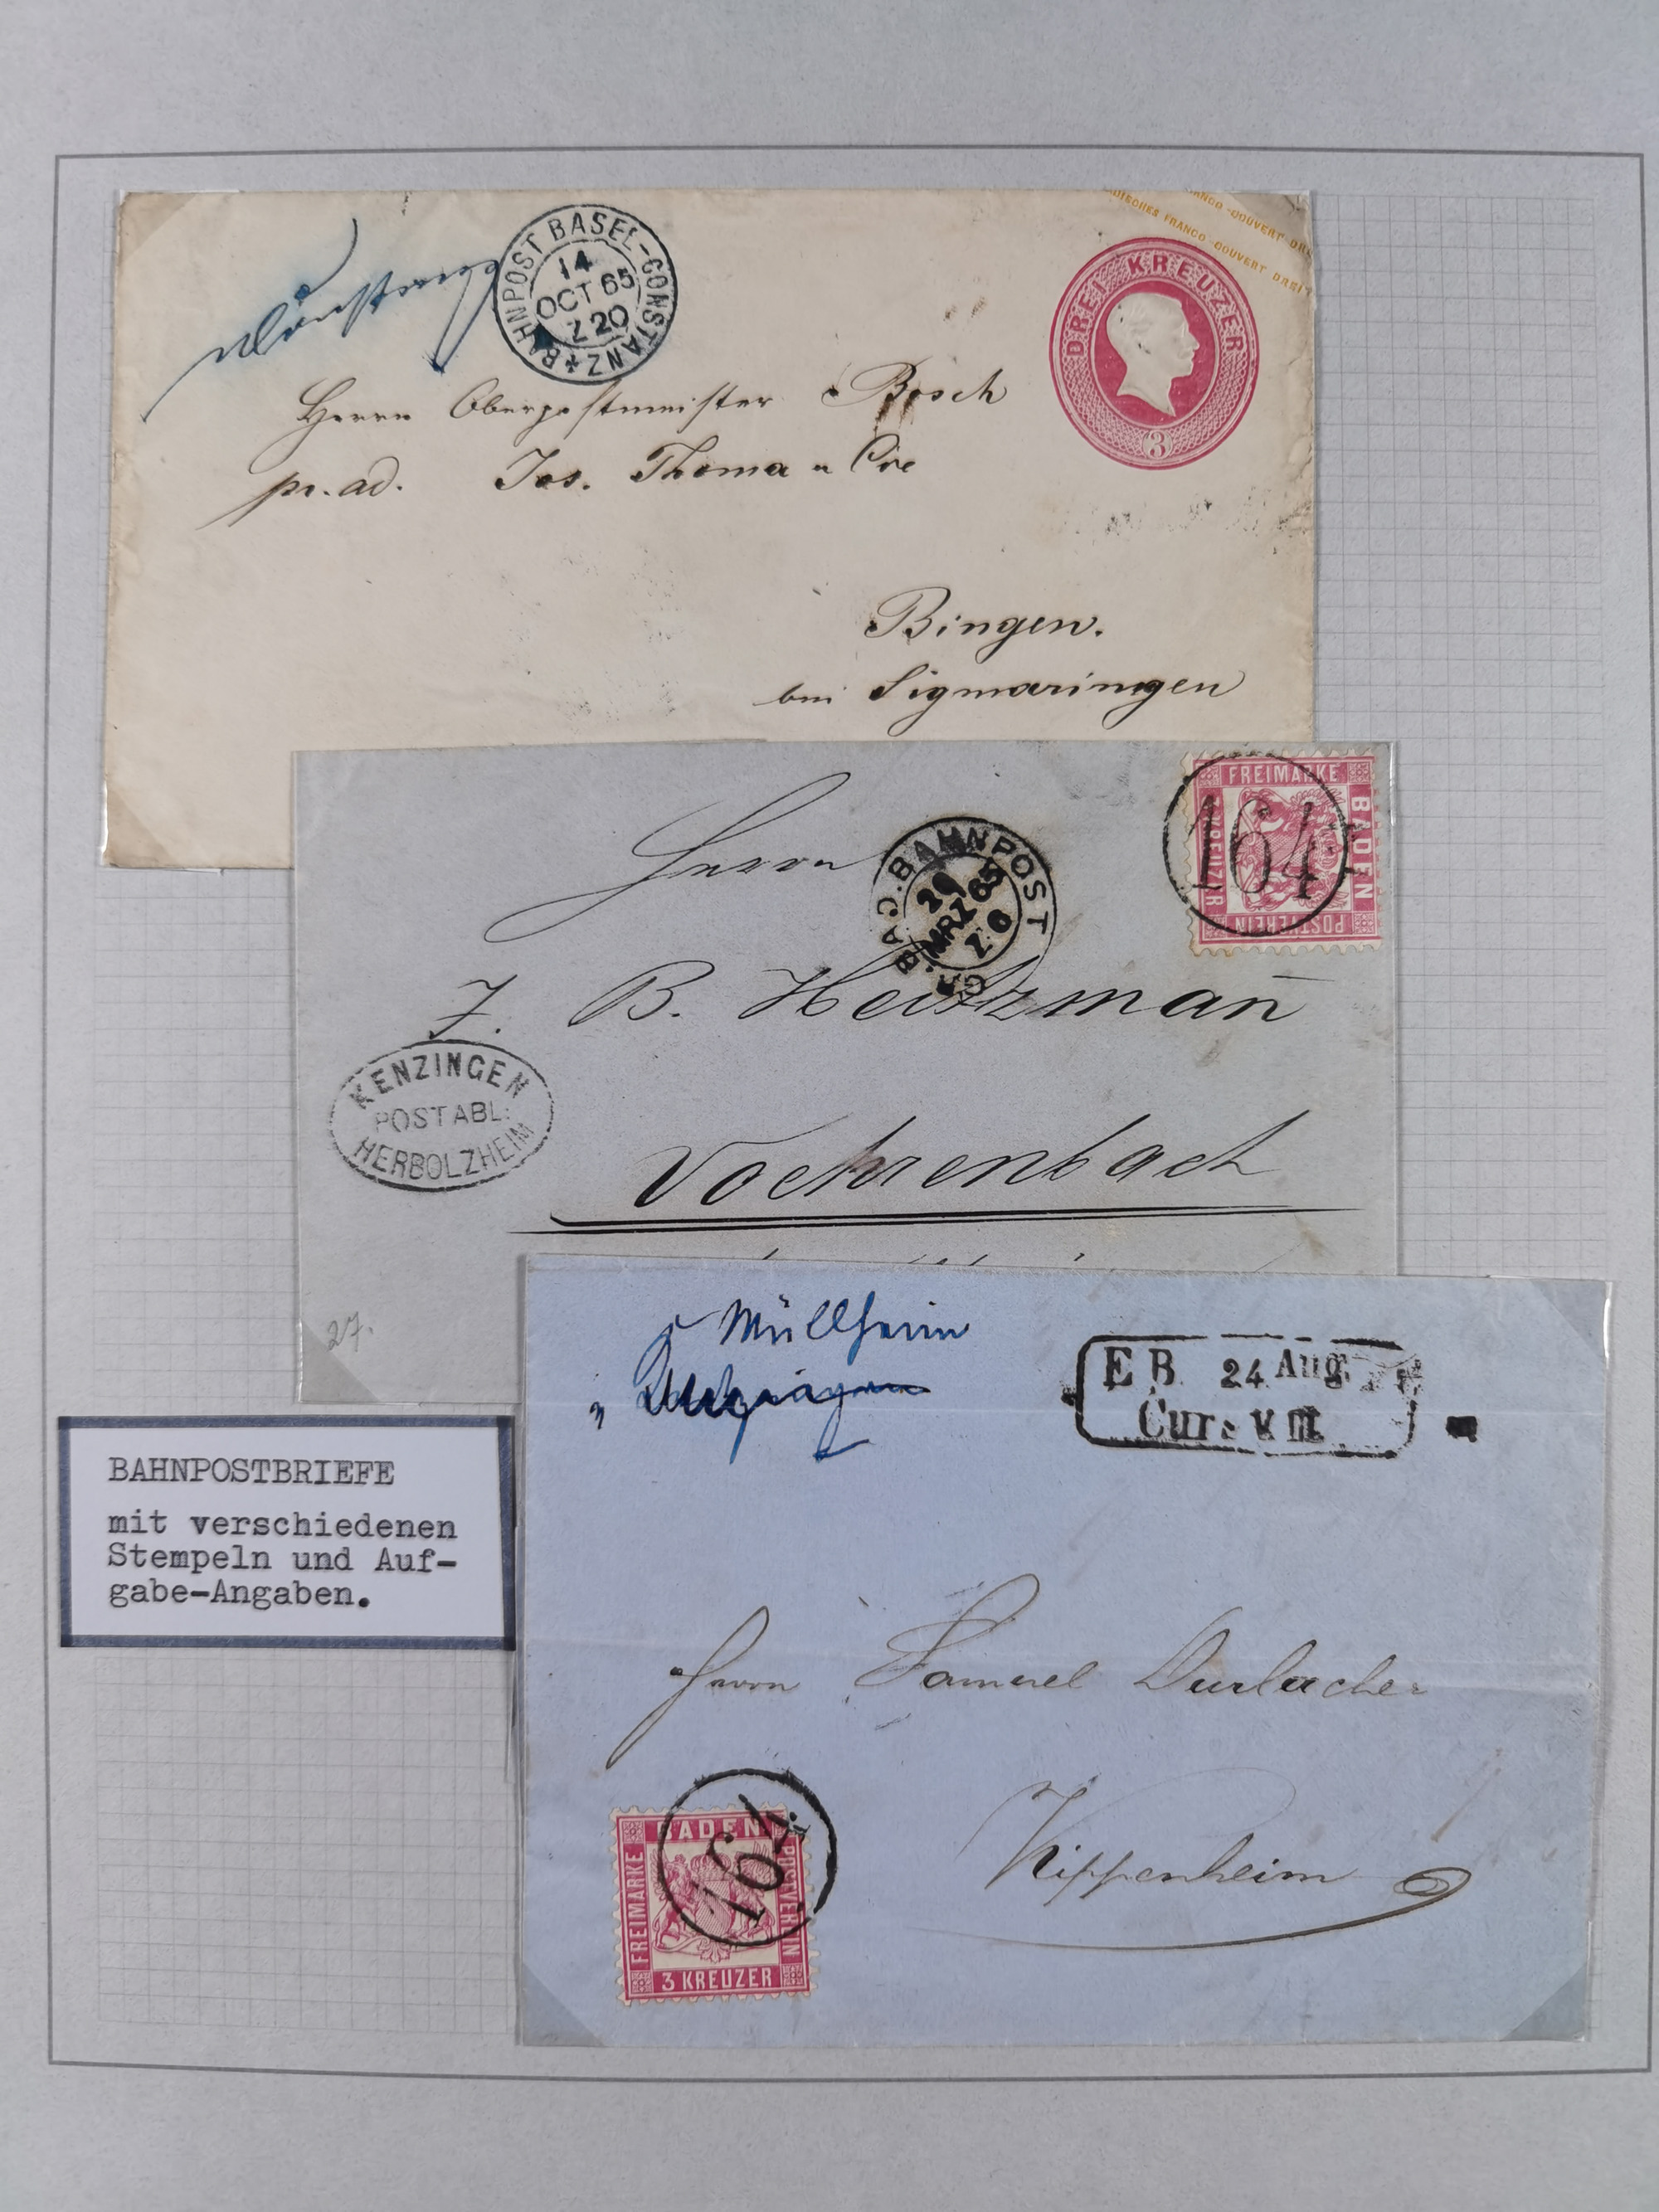 BAHNPOST BASEL-CONSTANZ
14
OCT 65
Z 20
DREI KREUZER
3
FRANCO-COUVERT
FRANCO-COUVERT DREI
Herrn Oberpostmeister Bosch
pr. ad. Jos. Thoma u Cie
Bingen.
bei Sigmaringen
FREIMARKE
BADEN
POSTVEREIN
3 KREUZER
164
GR. BAD. BAHNPOST
20
MRZ 65
Z 6
Herrn
J. B. Heitzman̄
KENZINGEN
POSTABL:
HERBOLZHEIM
Voehrenbach
27.
Müllheim
E B 24 Aug
Curs VIII
BAHNPOSTBRIEFE
mit verschiedenen
Stempeln und Auf-
gabe-Angaben.
Herrn Samuel Durlacher
Kippenheim
164
BADEN
FREIMARKE
POSTVEREIN
3 KREUZER